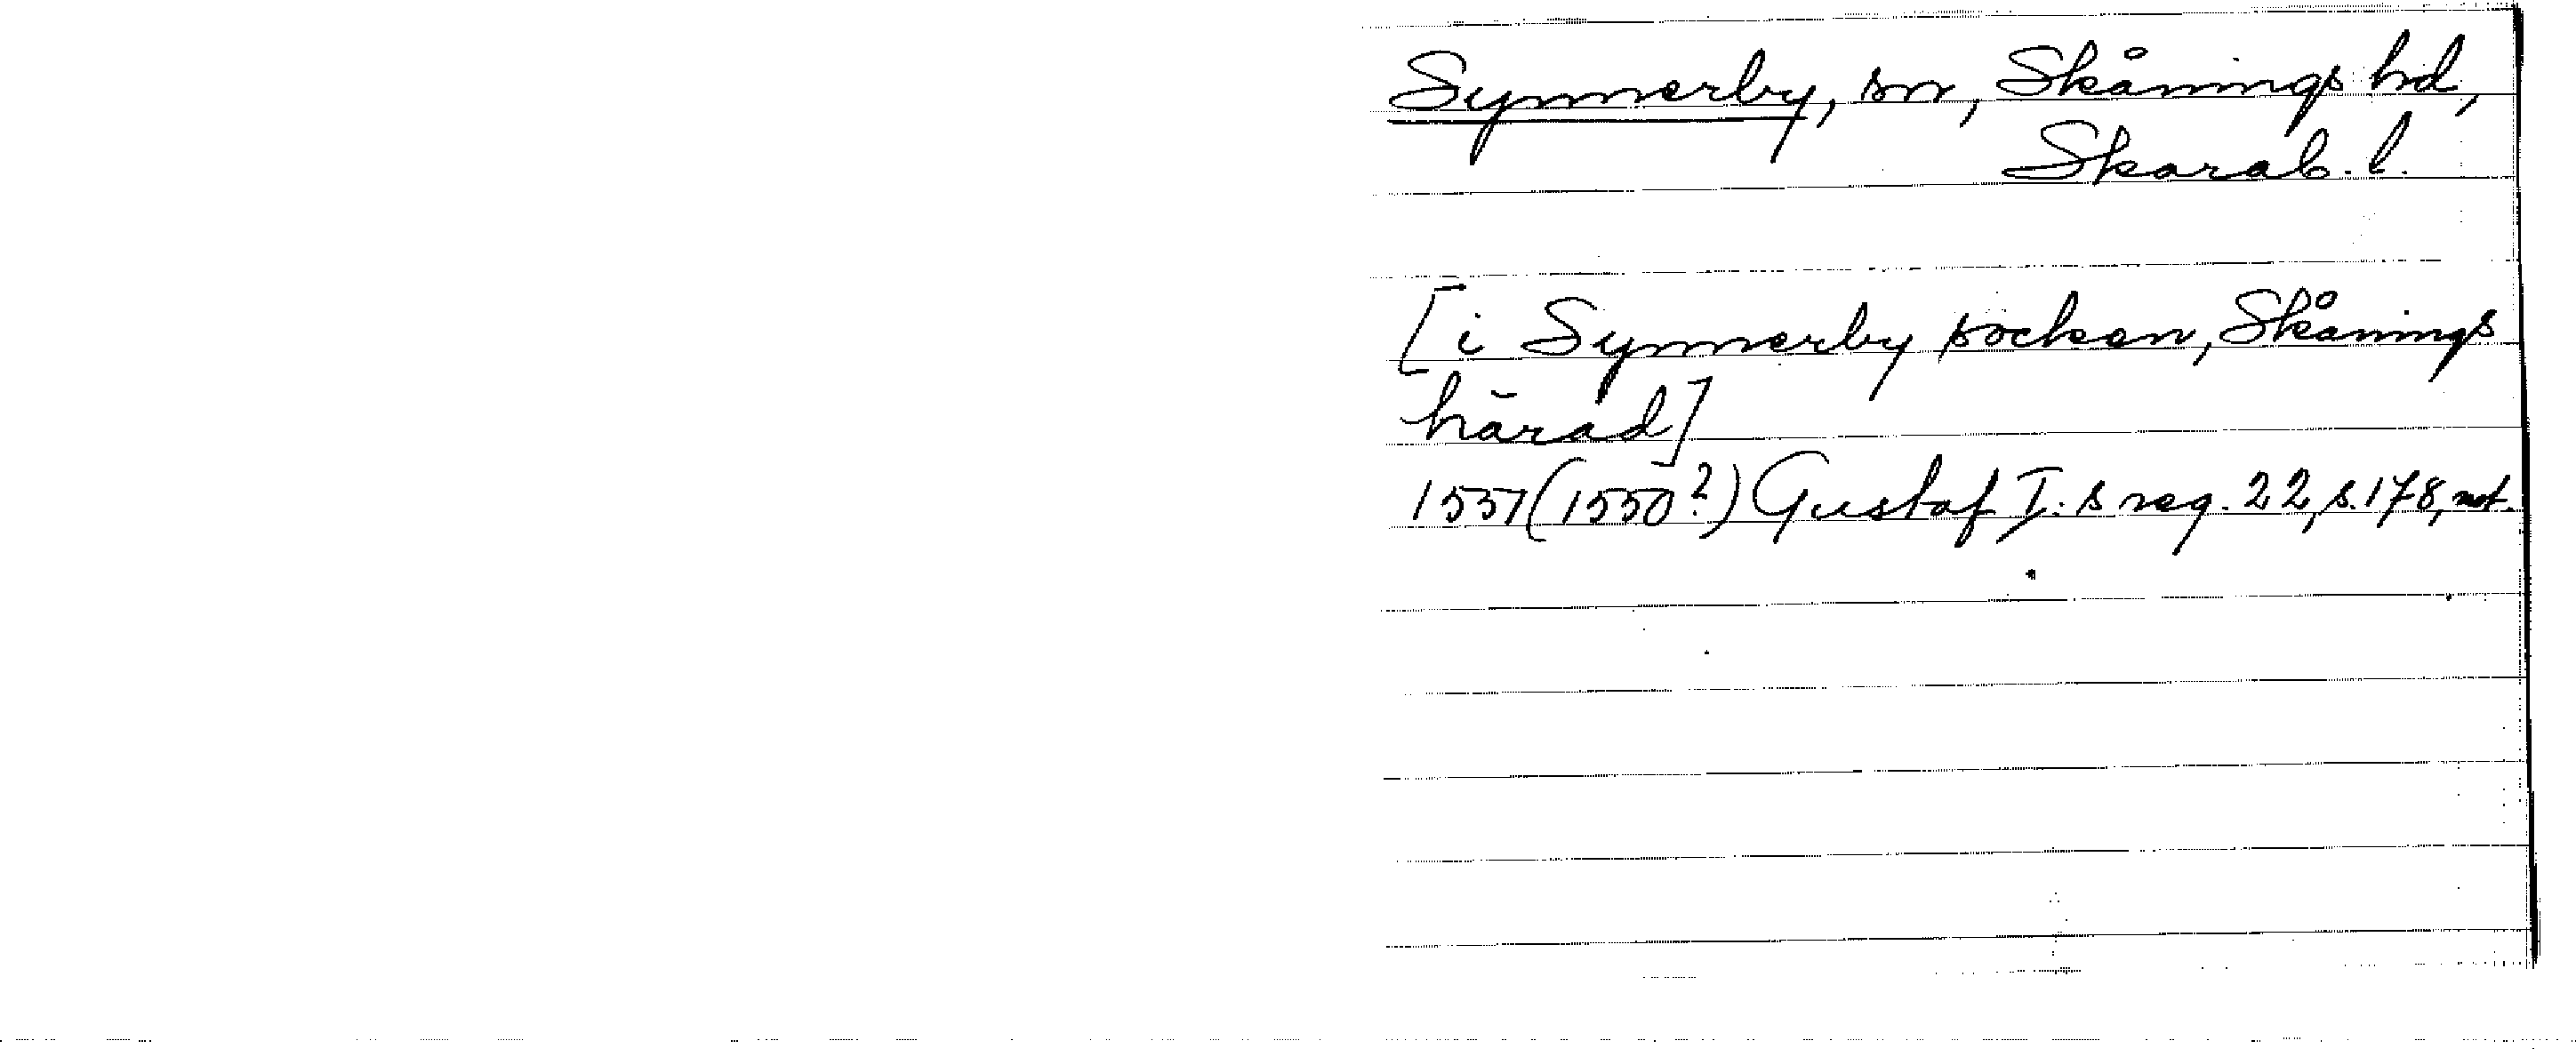 Synnerby, sn, Skånings hd,
Skarab. l.
[i Synnerby socken, Skånings
härad]
1551 (1550?) Gustaf I:s reg. 22, s. 178, not.